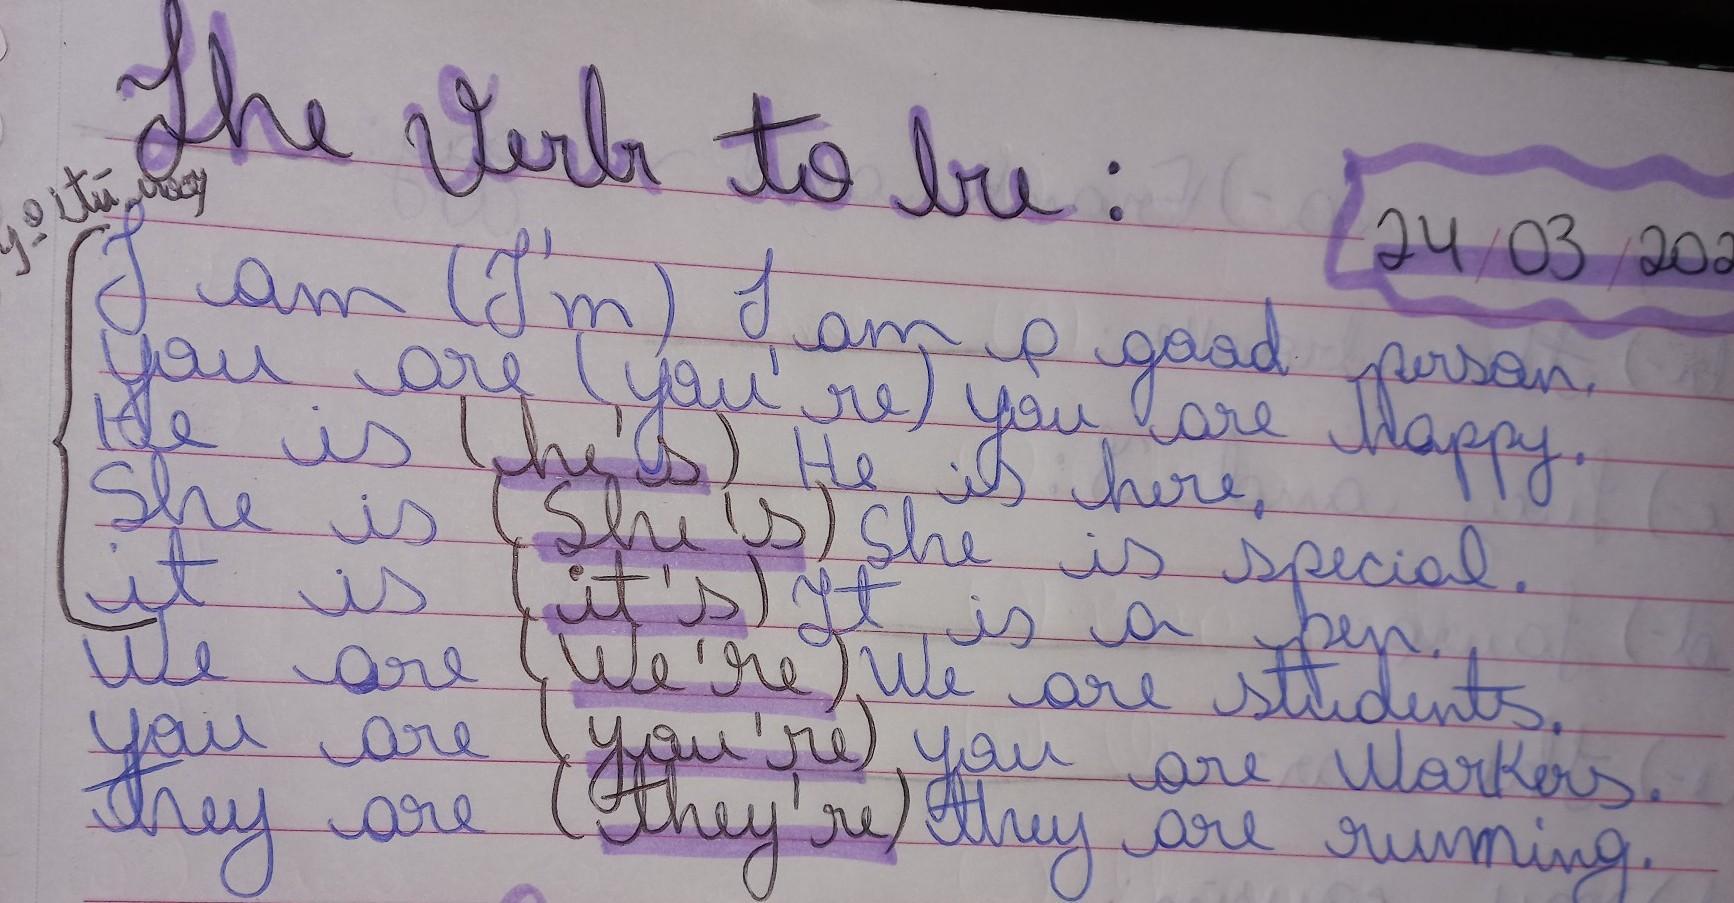 The Verb to be :
24/03/202
I am (I'm) I am a good person.
you are (you're) you are Happy.
He is (he's) He is here,
She is (She's) She is special.
it is (it's) It is a pen.
We are (We're) We are students.
you are (you're) you are Workers.
they are (they're) they are running.